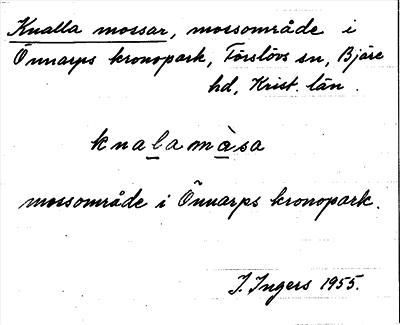 Knalla mossar, mossområde i
Önnarps kronopark, Förslövs sn, Bjäre
hd, Krist. län.
knalamàsa
mossområde i Önnarps kronopark.
J. Ingers 1955.